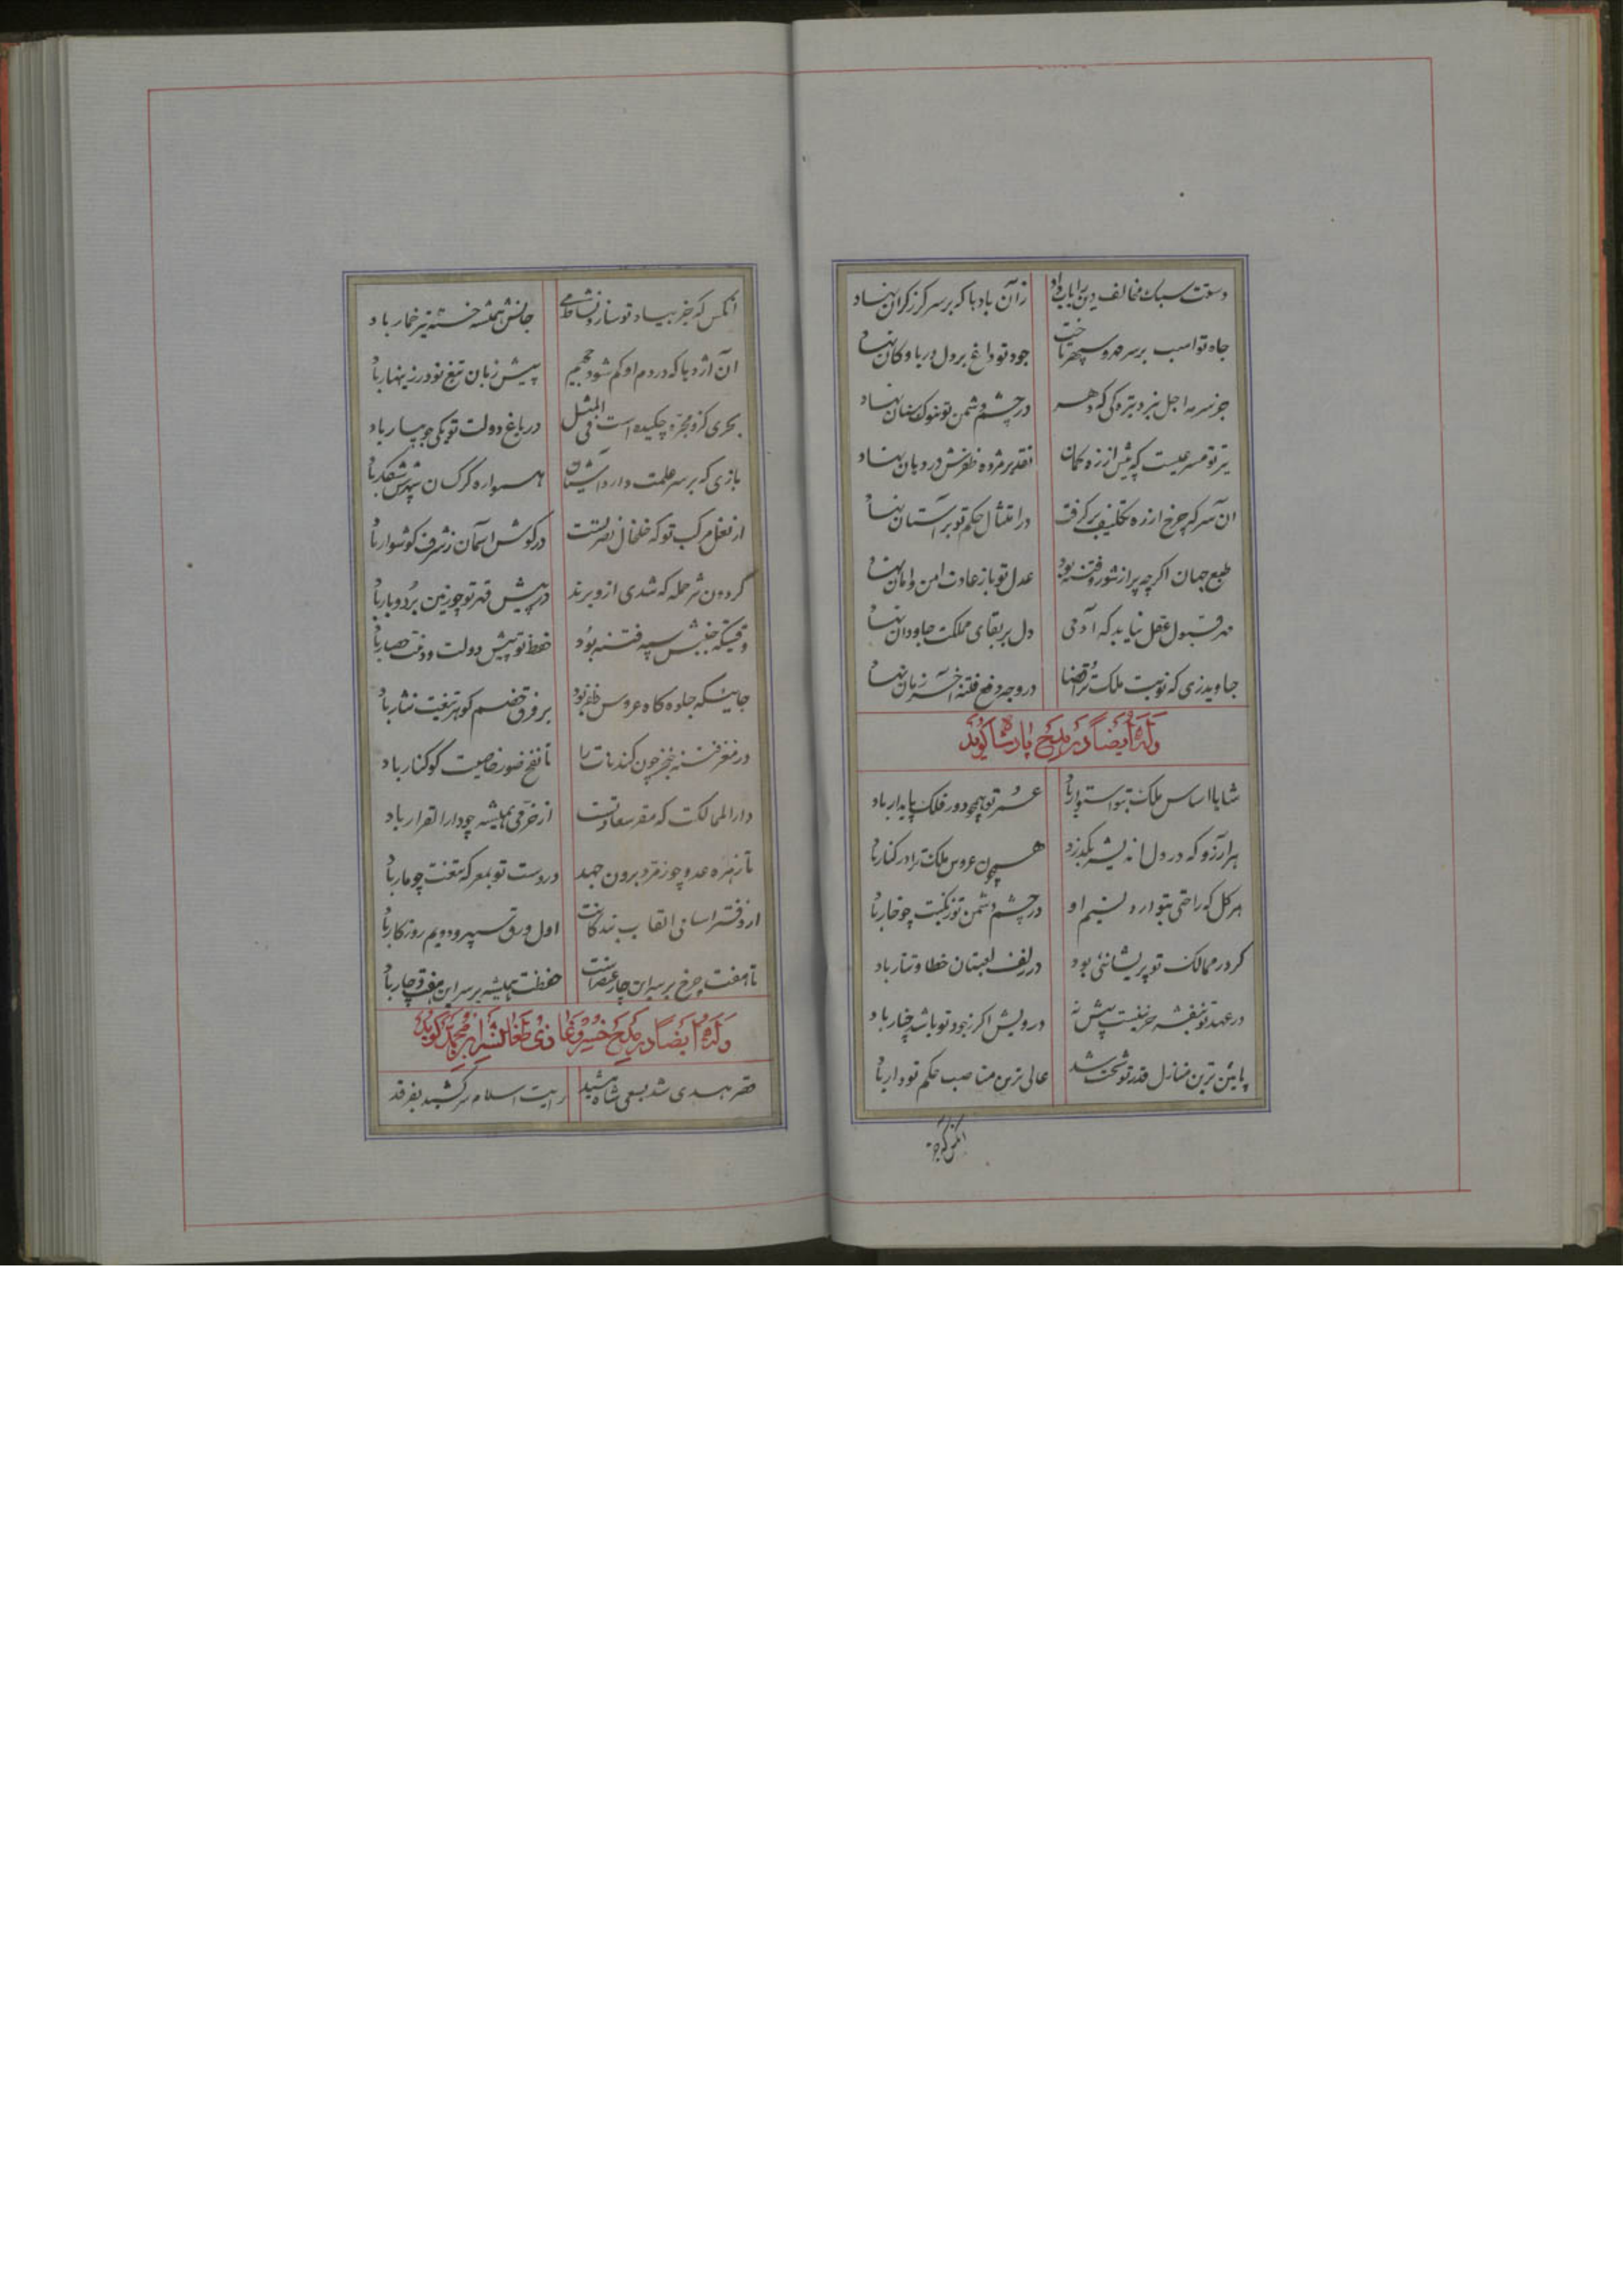 دستت سبک مخالف دین را بباد داد زان بادها که بر سر گرز گران نهاد
جاه تو اسب بر سر مه و سپهر تاخت جود تو داغ بر دل دریا و کان نهاد
جز سرمه اجل نبرد تیرگی که دهر در چشم دشمن تو نوک سنان نهاد
تیر تو مسرعیست که پیش از زه کمان نقد بر مژده ظفرش در دهان نهاد
آن سر که چرخ از زه تکلیف برگرفت در امتثال حکم تو بر آستان نهاد
طبع جهان اگرچه پر از شور و فتنه بود عدل تو باز عادت امن و امان نهاد
در قبول عقل نیاید که آدمی دل بر بقای مملکت جاودان نهاد
جاوید زی که نوبت ملک ترا قضا در وجه دفع فتنه آخر زمان نهاد
وله ایضا در مدح پادشاه گوید
شاها اساس ملک بتو استوار باد عمر تو همچو دور فلک پایدار باد
هر آرزو که در دل اندیشه بگذرد همچون عروس ملک ترا در کنار باد
هر گل که راحتی بتو آرد نسیم او در چشم دشمن تو ز نکبت چو خار باد
گر در ممالک تو پریشانئی بود در زلف لعبتان خطا و تتار باد
در عهد تو بنفشه خزینست پیش نه درویش اگر ز جود تو باشد چنار باد
پائین ترین منازل قدر تو تخت شد عالی ترین مناصب حکم تو دار باد
انکس که جز
انکس که جز بیاد تو سازد نشاط می جانش همیشه خسته تیر خمار باد
آن اژدها که در دم او گم شود جحیم پیش زبان تیغ تو در زینهار باد
بحری کزو مجره چکیده است فی المثل در باغ دولت تو یکی جویبار باد
بازی که بر سر علمت دارد آشیان همواره کرکسان سپهرش شکار باد
از نعل مرکب تو که خلخال نصرتست در گوش آسمان ز شرف گوشوار باد
گردون شرحمله که شدی ازو برند در پیش قهر تو چو زمین بردبار باد
وقتیکه جنبش سپه فتنه بود حفظ تو پیش دولت و دینت حصار باد
جائیکه جلوه گاه عروس ظفر بود بر فرق خصم گوهر تیغت نثار باد
در مغز فتنه خنجر چون گندنات را تا نفخ صور خاصیت کوکنار باد
دار الممالکت که مقر سعادتست از خرمی همیشه چو دار القرار باد
تا زهره عدو چو زمرد برون جهد در دست تو بمعرکه تیغت چو مار باد
از دفتر اسامی القاب بندگانت اول ورق سپهر و دویم روزگار باد
تا هفت چرخ بر سر این چار عنصرست حفظت همیشه بر سر این هفت و چار باد
وله ایضا در مدح خسرو غازی طغانشاه بن محمد گوید
قصر هدی شد بسعی شاه مشید رایت اسلام سر کشید بفرقد